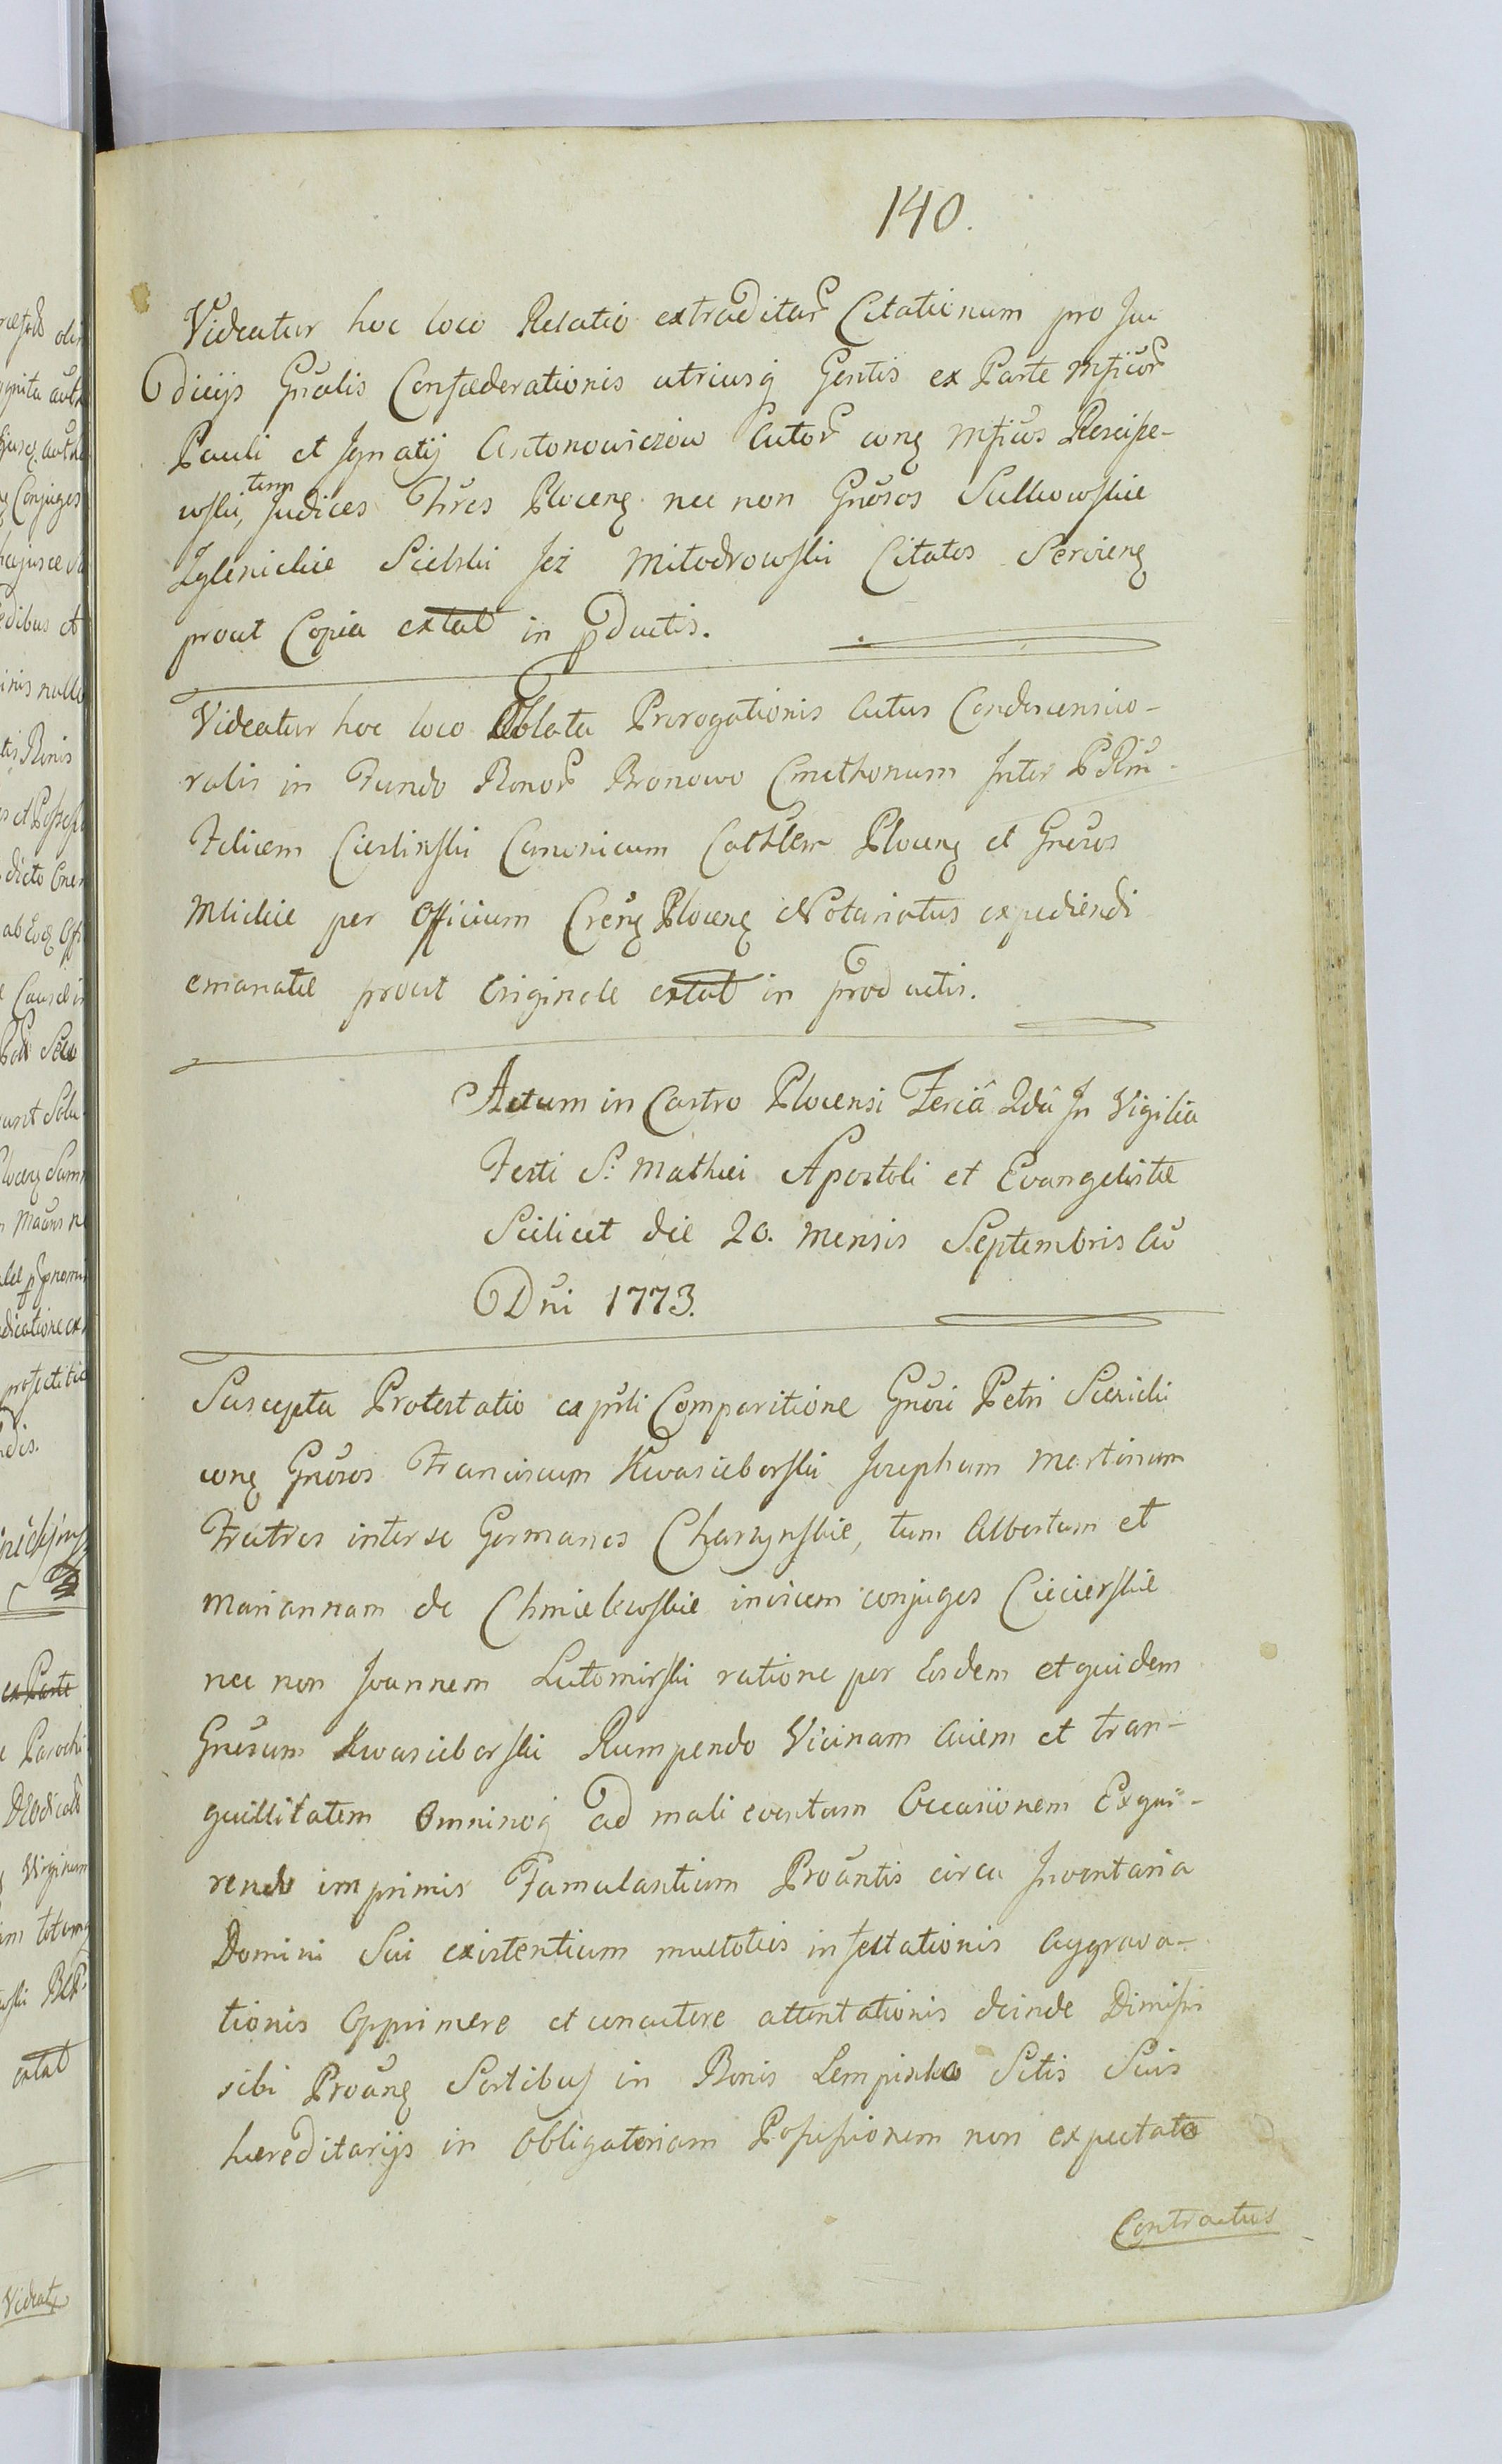 140.
Videatur hoc loco Relatio extraditar Citationum pro Ju-
dicijs Gñalis Confæderationis utriusq Gentis ex Parte Mficor
Pauli et Ignatij Antonowiczow Actor conq Mficos
wski, tum Judices Thres Plocenq nec non Gñosos Sulkowskie
Zglenickie Sielski Jeż Miłodrowski Citatos Servienq
prout Copia extat in pductis.
Videatur hoc loco Oblata Prorogationis Actus Condescensio-
ralis in Fundo Bonor Bronowo Cmethonum Inter P Rm̃
Felicem Cieslinski Canonicum Cathlem Plocenq et Gñosos
Mlickie per Officium Crenq Plocenq Notariatus expediendi
emanatæ prout Originale extat in productis.
Actum in Castro Plocensi Feriâ 2dâ In Vigilia
Festi S: Mathæi Apostoli et Evangelistæ
Scilicet die 20. Mensis Septembris Ao
Dñi 1773.
Suscepta Protestatio ex pñti Comparitione Gñosi Petri Sierzicki
conq Gñosos Franciscum Kwasieborski Josephum Martinum
Fratres inter se Germanos Charzynskie, tum Albertum et
Mariannam de Chmielewskie invicem conjuges Ciecierskie
nec non Joannem Lutomirski ratione per Eosdem et quidem
Gñosum Kwasieborski Rumpendo Vicinam Aciem et tran-
quillitatem Omninoq ad mali eventum Occasionem Exqui-
rendo imprimis Famulantium Proũntis circa Inventaria
Domini Sui existentium multoties infestationis Aggrava-
tionis Opprimere et concutere attentationis deinde Dimissi
sibi Proũnq Sortibus in Bonis Lempinko Sitis Suis
hæreditarijs in Obligatoriam Possessionem non expectato
Contractus